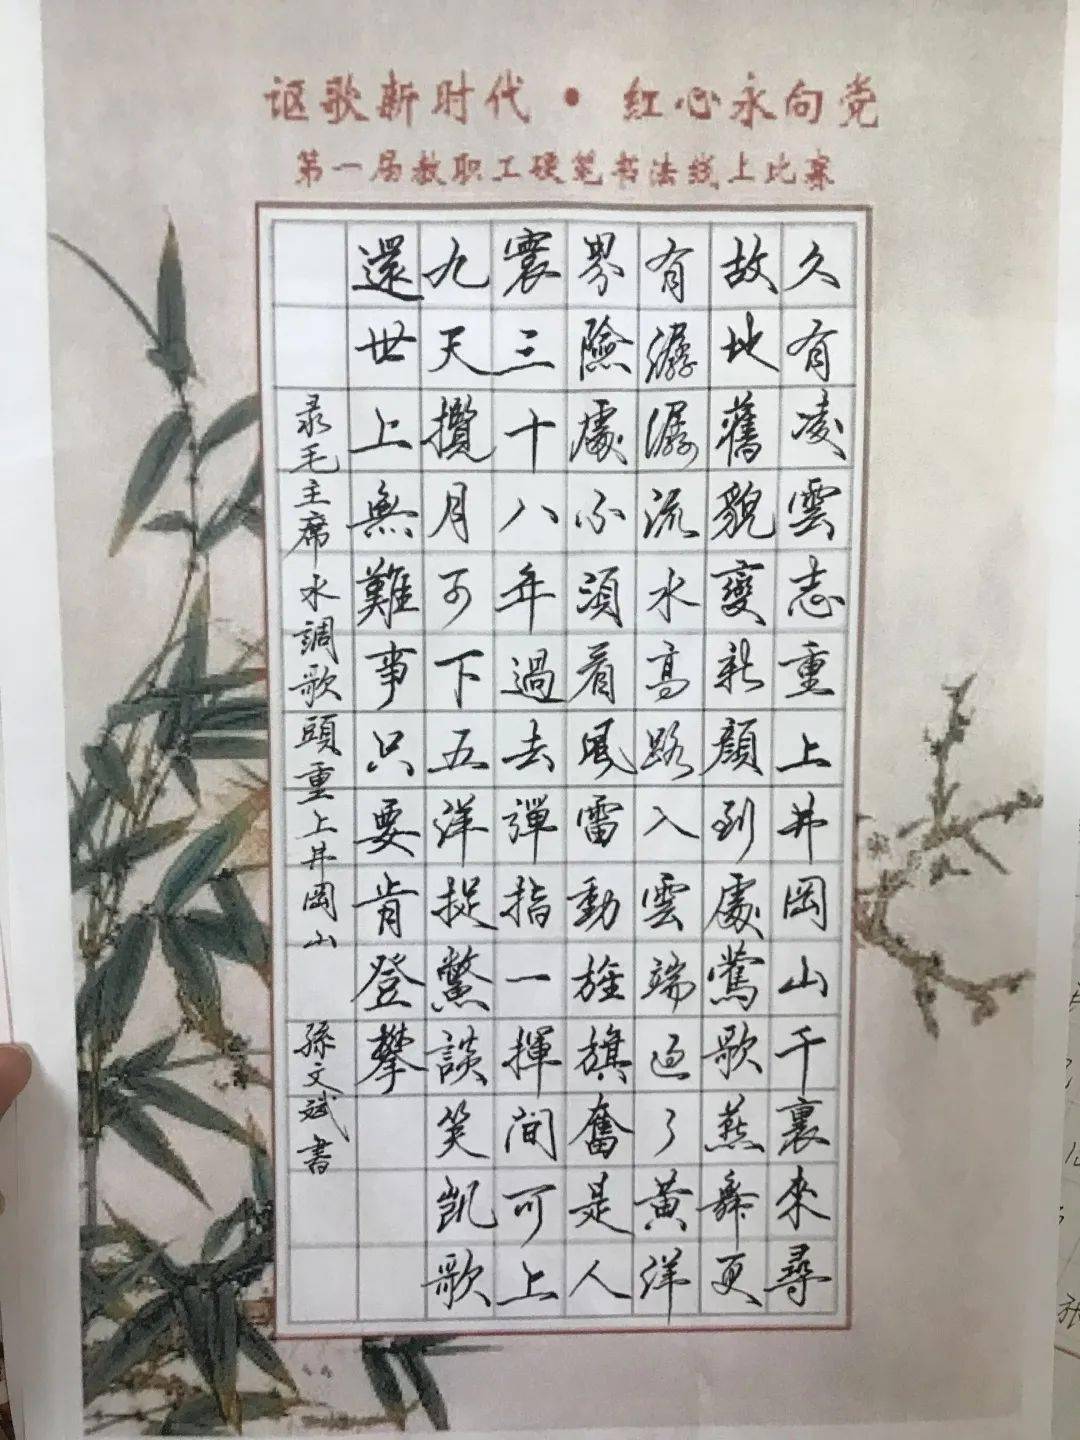 讴歌新时代·红心永向党
第一届教职工硬笔书法线上比赛
久有凌雲志重上井岡山千裏來尋
故地舊貌變新顏到處鶯歌燕舞更
有潺潺流水高路入雲端過了黃洋
界險處不須看風雷動旌旗奮是人
寰三十八年過去彈指一揮間可上
九天攬月可下五洋捉鱉談笑凱歌
還世上無難事只要肯登攀
录毛主席水調歌頭重上井岡山 孫文斌書